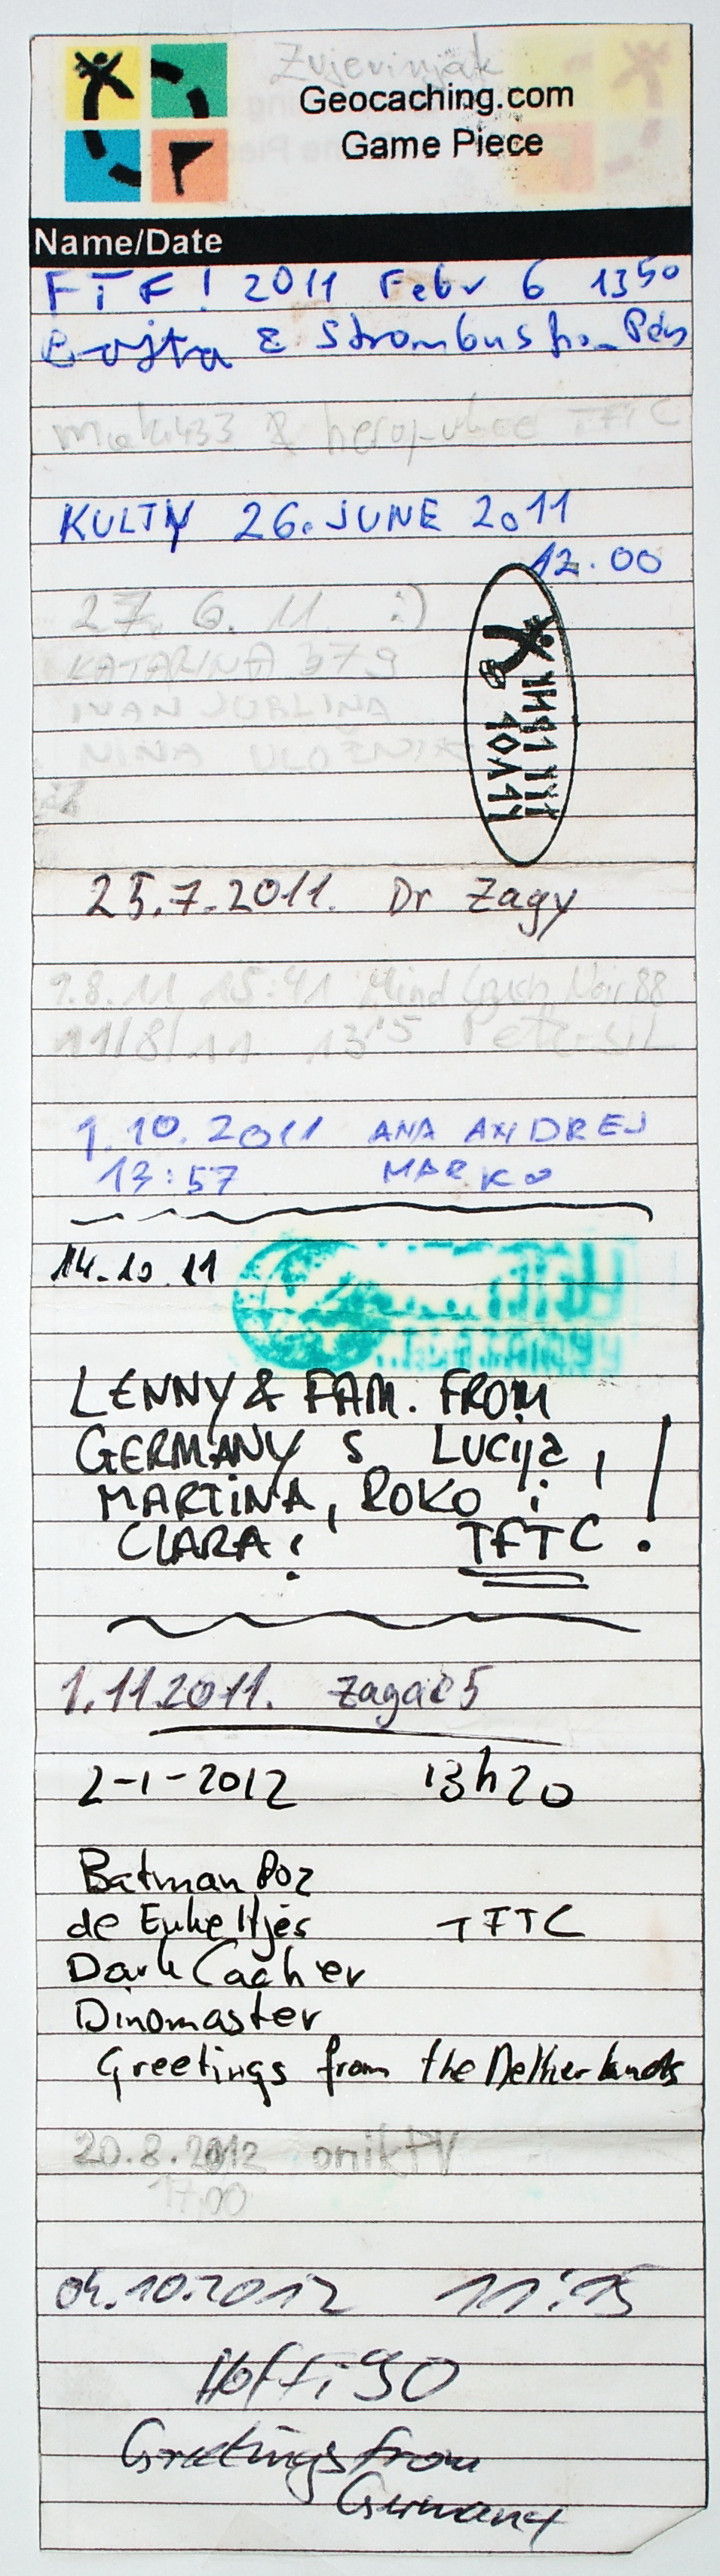 Zvjerinjak
Geocaching.com
Game Piece
Name/Date
FTF! 2011 Febr 6 13 50
& Strombus from
TFTC
KULTY 26. JUNE 2011
12.00
27. 6. 11. :)
KATARINA 379
IVAN
NINA
25.7.2011. Dr Zagy
9.8.11 15:41 Mind
11/8/11 13 15 Petersil
1.10.2011 ANA ANDREJ
13:57 MARKO
14.10.11
LENNY & FAM. FROM
GERMANY S Lucija,
MARTINA, ROKO i
CLARA! TFTC!
1.11.2011. zagac5
2-1-2012 13h20
Batman
de TFTC
Dark Cacher
Dinomaster
Greetings from the Netherlands
20.8.2012 onikTV
17.00
04.10.2012 11:15
Hoffi90
Greetings from
Germany